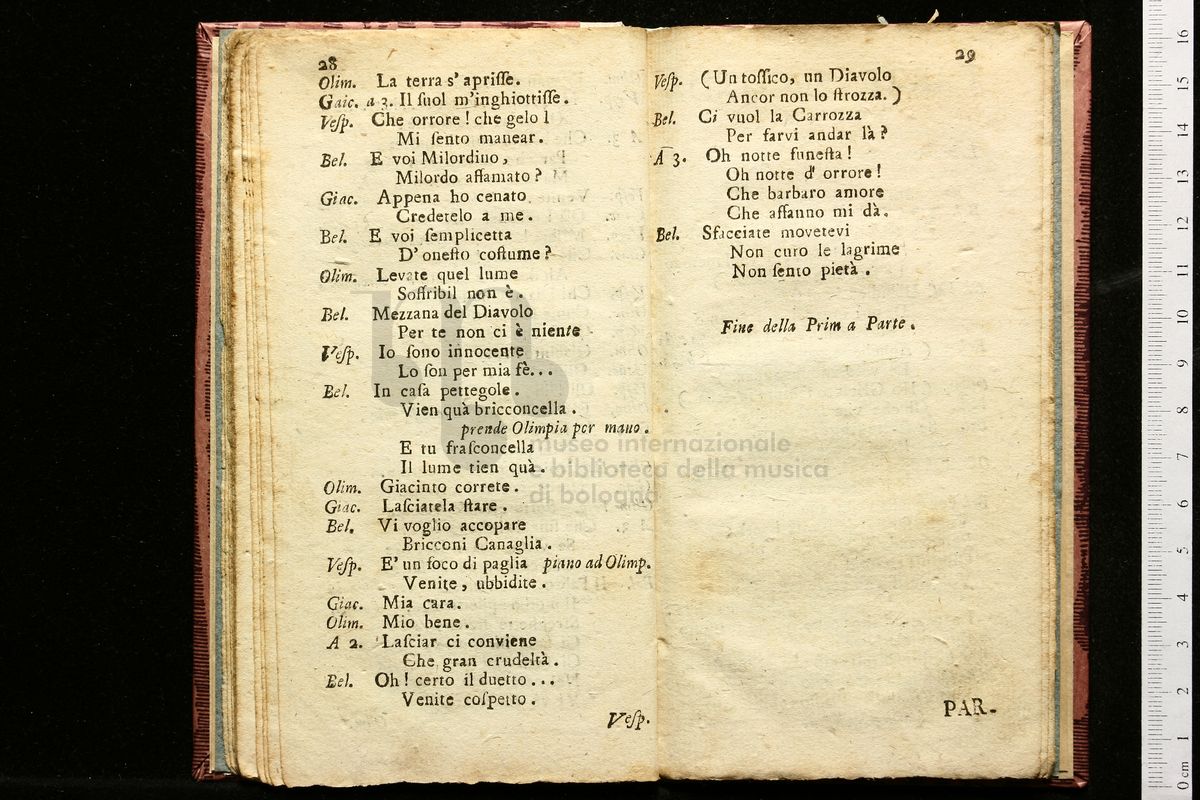 28
Olim. La terra s' apriſſe.
Gaic. a 3. Il ſuol m'inghiottiſſe.
Veſp. Che orrore! che gelo l
Mi ſento manear.
Bel. E voi Milordino,
Milordo affamato?
Giac. Appena ho cenato
Credetelo a me.
Bel. E voi ſemplicetta
D' oneſto coſtume?
Olim. Levate quel lume
Soffribil non è.
Bel. Mezzana del Diavolo
Per te non ci è niente
Veſp. Io ſono innocente
Lo ſon per mia fè...
Bel. In caſa pettegole.
Vien quà bricconcella.
prende Olimpia per mano.
E tu fraſconcella
Il lume tien quà.
Olim. Giacinto correte.
Giac. Laſciatela ſtare.
Bel. Vi voglio accopare
Bricconi Canaglia.
Veſp. E' un foco di paglia piano ad Olimp.
Venite, ubbidite.
Giac. Mia cara.
Olim. Mio bene.
A 2. Laſciar ci conviene
Che gran crudeltà.
Bel. Oh! certo il duetto...
Venite coſpetto.
Veſp.
29
Veſp. (Un toſſico, un Diavolo
Ancor non lo ſtrozza.)
Bel. Ci vuol la Carrozza
Per farvi andar là?
A 3. Oh notte funeſta!
Oh notte d' orrore!
Che barbaro amore
Che affanno mi dà.
Bel. Sfacciate movetevi
Non curo le lagrime
Non ſento pietà.
Fine della Prim a Parte.
PAR-
museo internazionale
biblioteca della musica
di bologna
16
15
14
13
12
11
10
9
8
7
6
5
4
3
2
1
0 cm